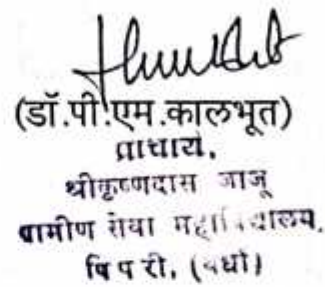 (डॉ.पी.एम.कालभूत)
प्राचार्य,
श्रीकृष्णदास जाजू
ग्रामीण सेवा महाविद्यालय,
पिपरी, (वर्धा)